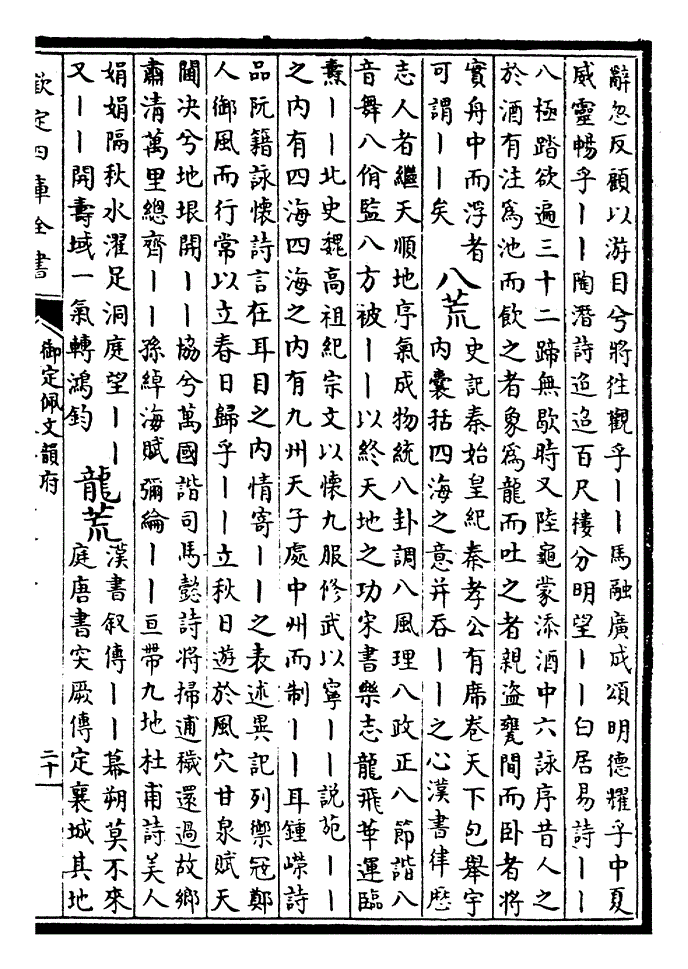 辭忽反顧以游目兮將往觀乎｜｜馬融廣成頌明德耀乎中夏
威靈暢乎｜｜陶潛詩迢迢百尺樓分明望｜｜白居易詩｜｜
八極踏欲遍三十二蹄無歇時又陸龜蒙添酒中六詠序昔人之
於酒有注爲池而飲之者象爲龍而吐之者親盜甕間而卧者將
實舟中而浮者
可謂｜｜矣
八荒
史記秦始皇紀秦孝公有席卷天下包舉宇
内囊括四海之意并吞｜｜之心漢書律歴
志人者繼天順地序氣成物統八卦調八風理八政正八節諧八
音舞八佾監八方被｜｜以終天地之功宋書樂志龍飛華運臨
燾｜｜北史魏高祖紀宗文以懷九服修武以寧｜｜説苑｜｜
之内有四海四海之内有九州天子處中州而制｜｜耳鍾嶸詩
品阮籍詠懷詩言在耳目之内情寄｜｜之表述異記列禦冠鄭
人御風而行常以立春日歸乎｜｜立秋日遊於風穴甘泉賦天
閫决兮地垠開｜｜協兮萬國諧司馬懿詩將掃逋穢還過故鄉
肅清萬里總齊｜｜孫綽海賦彌綸｜｜亘帶九地杜甫詩美人
娟娟隔秋水濯足洞庭望｜｜
又｜｜開壽域一氣轉鴻鈞
龍荒
漢書叙傳｜｜幕朔莫不來
庭唐書突厥傳定襄城其地
欽定四庫全書
御定佩文韻府
二十